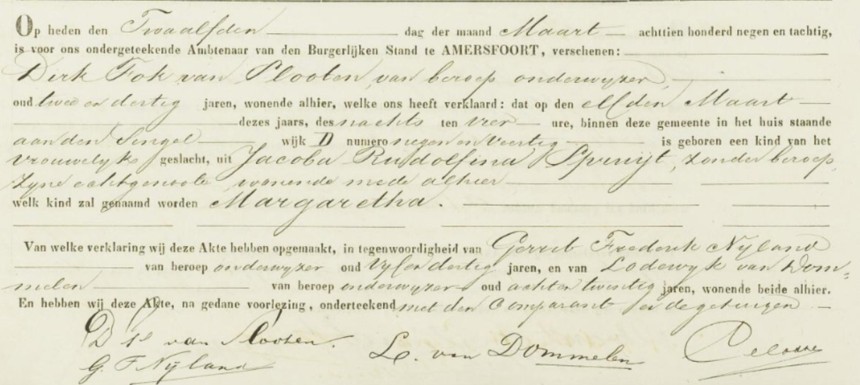 Op heden den Twaalfden dag der maand Maart achttien honderd negen en tachtig,
is voor ons ondergeteekende Ambtenaar van den Burgerlijken Stand te AMERSFOORT, verschenen:
Dirk Fok van Slooten, van beroep onderwijzer,
oud twee en dertig jaren, wonende alhier, welke ons heeft verklaard: dat op den elfden Maart
dezes jaars, des nachts ten vier ure, binnen deze gemeente in het huis staande
aan den Singel wijk D numero negen en veertig is geboren een kind van het
vrouwelijk geslacht, uit Jacoba Rudolfina Spruijt, zonder beroep,
zijne echtgenoote wonende mede alhier
welk kind zal genaamd worden Margaretha.
Van welke verklaring wij deze Akte hebben opgemaakt, in tegenwoordigheid van Gerrit Frederik Nijland
van beroep onderwijzer oud vijf en dertig jaren, en van Lodewijk van Dom-
melen van beroep onderwijzer oud acht en twintig jaren, wonende beide alhier.
En hebben wij deze Akte, na gedane voorlezing, onderteekend met den Comparant en de getuigen
D van Slooten.
G. F. Nijland
L. van Dommelen